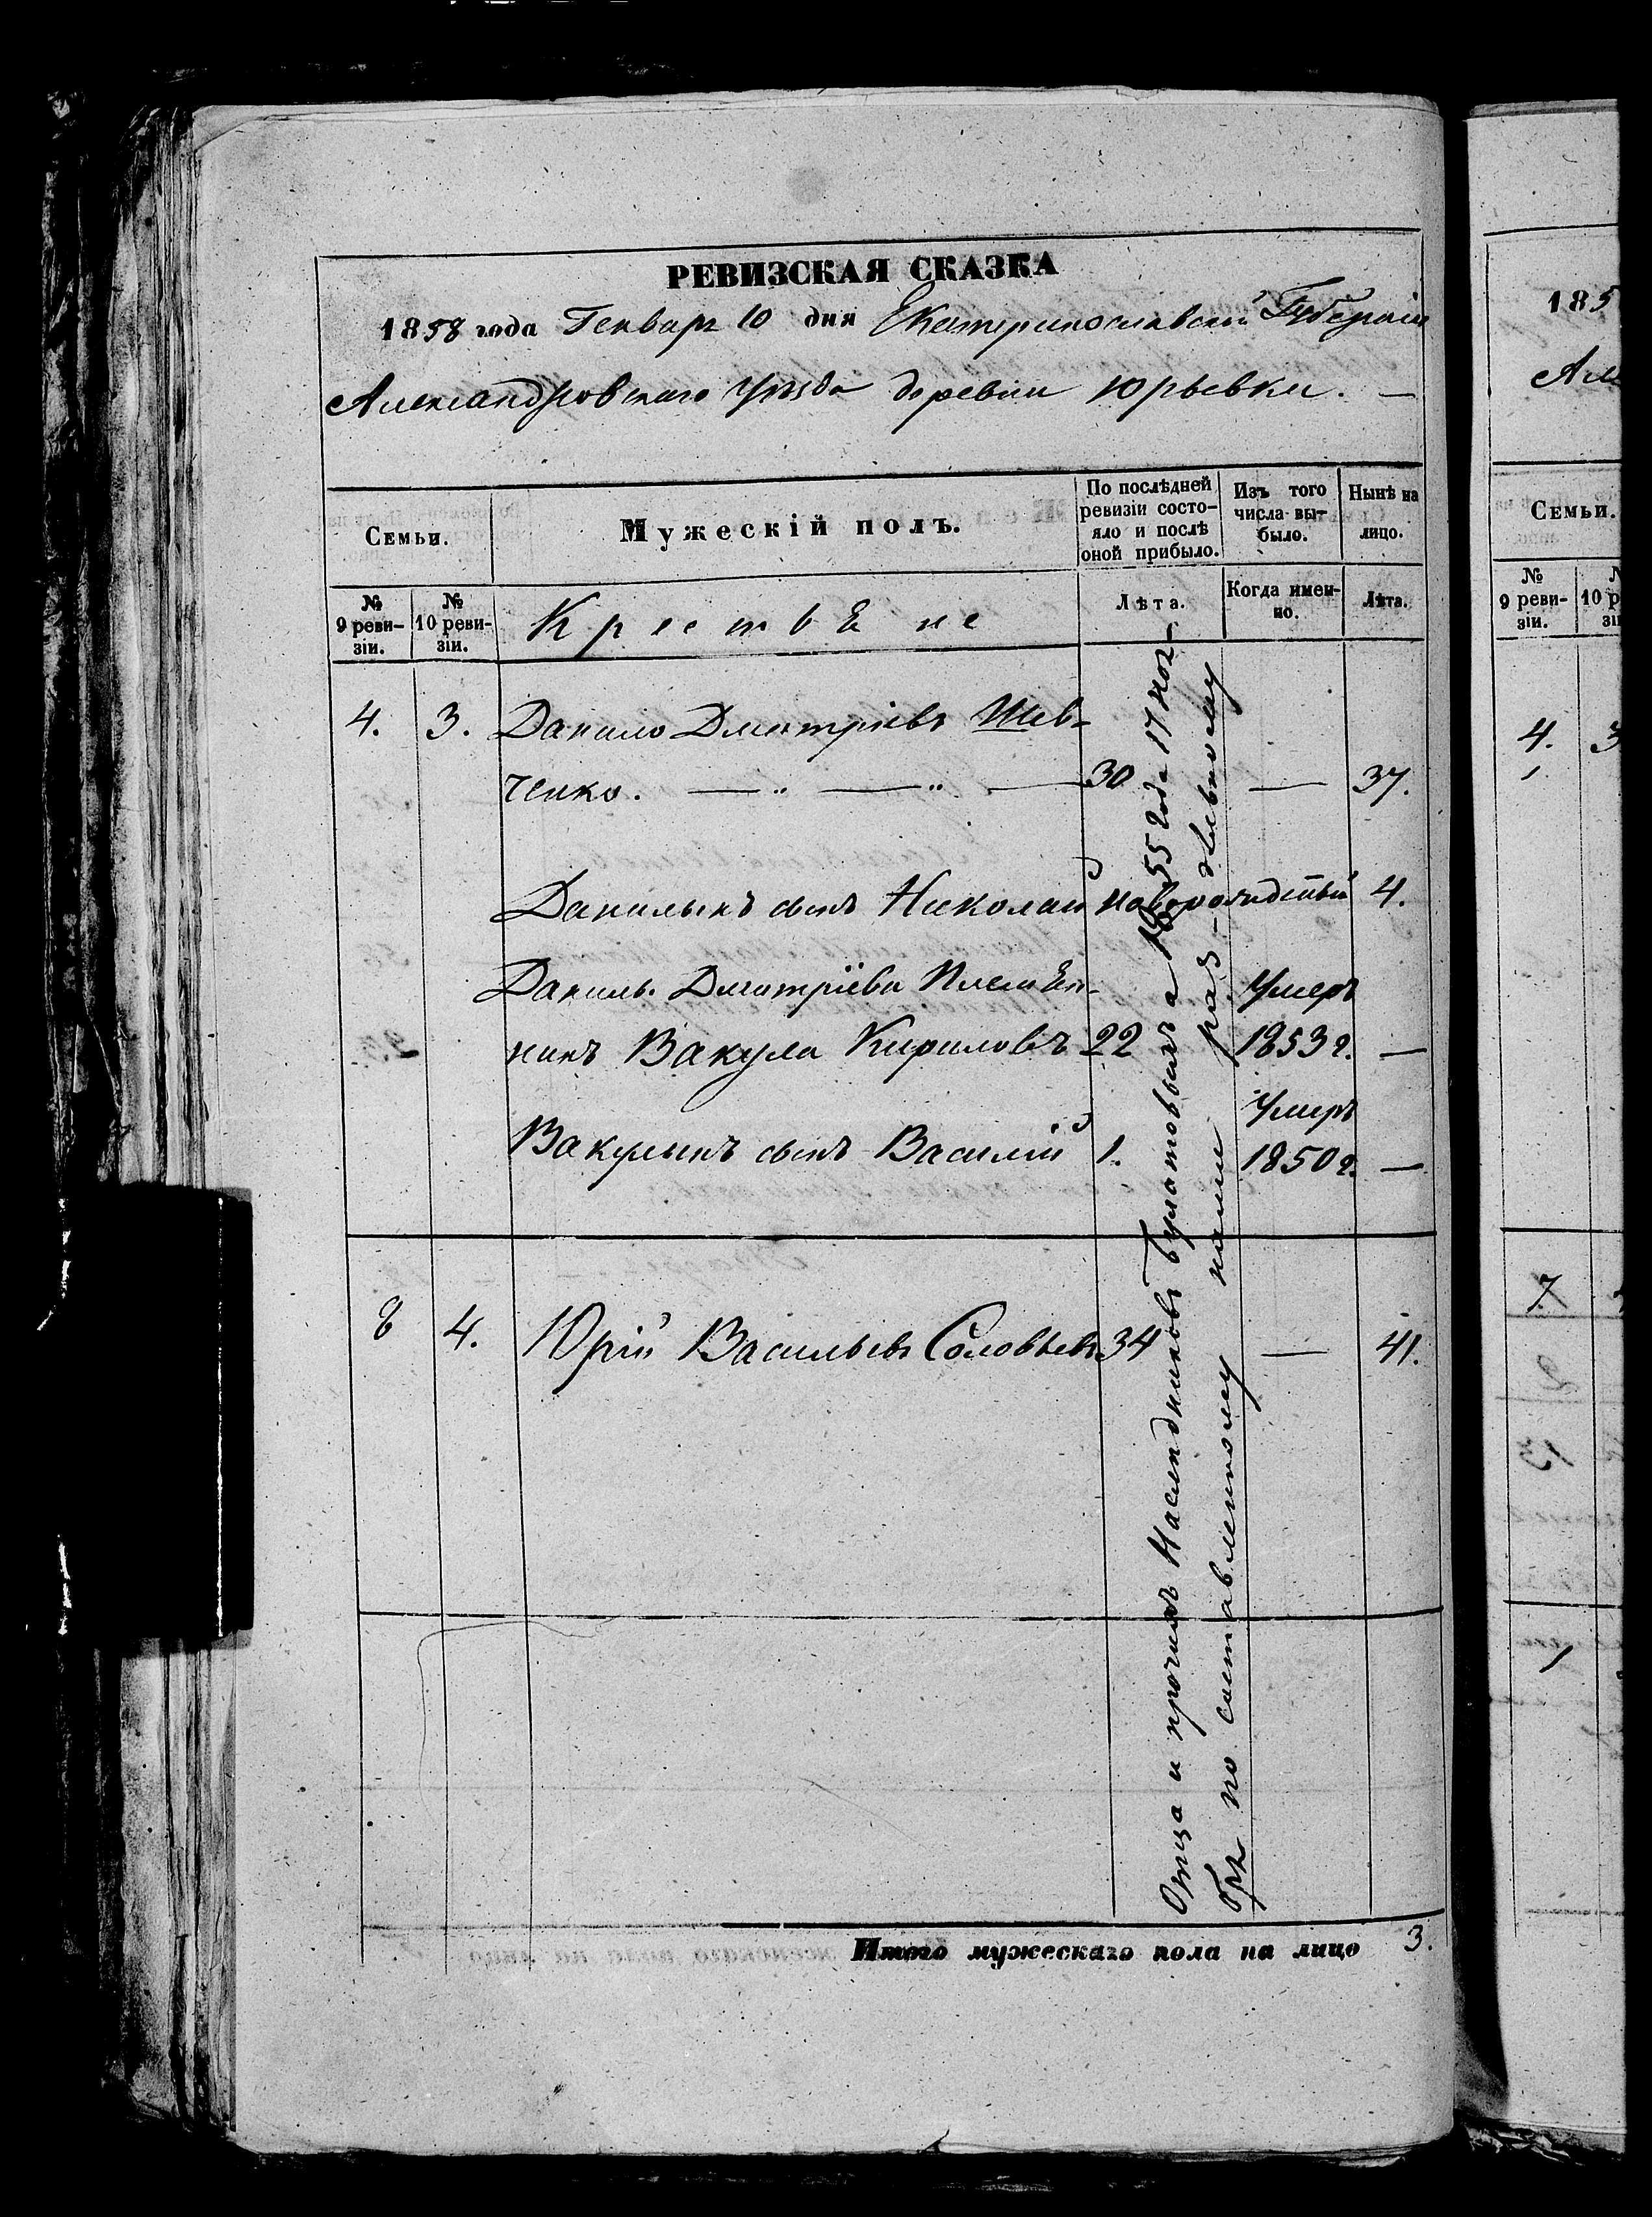 РЕВИЗСКАЯ СКАЗКА
1858 года Генваря 10 дня Екатеринославской Губерніи
Александровскаго Уѣзда деревни Юрьевки. —
Семьи.
Мужескій полъ.
По послѣдней ревизіи состо-
яло и послѣ
оной прибыло.
Изъ того
числа вы-
было.
Нынѣ на
лицо.
№
9 реви-
зіи.
№
10 реви-
зіи.
Крестьяне
Лѣта.
Когда имен-
но.
Лѣта.
4. 3. Данило Дмитріевъ Шев-
ченко. — „ — „ — 30 — 37.
Данилинъ сынъ Николай новорожденный 4.
Данилы Дмитріева Племян-
никъ Вакула Кириловъ 22 Умеръ 1853 г. —
Вакулинъ сынъ Василій 1. Умеръ 1850 г. —
8 4. Юрій Васильевъ Соловьевъ 34 — 41.
Отца и прочихъ Наслѣдниковъ Булатовыхъ а 1855 года 17 Ноя-
бря по составленному нами раз-дѣльному
Итого мужескаго пола на лицо 3.
185
Але
Семьи.
№
9 реви-
зіи.
10 р
зі
4. 3
7.